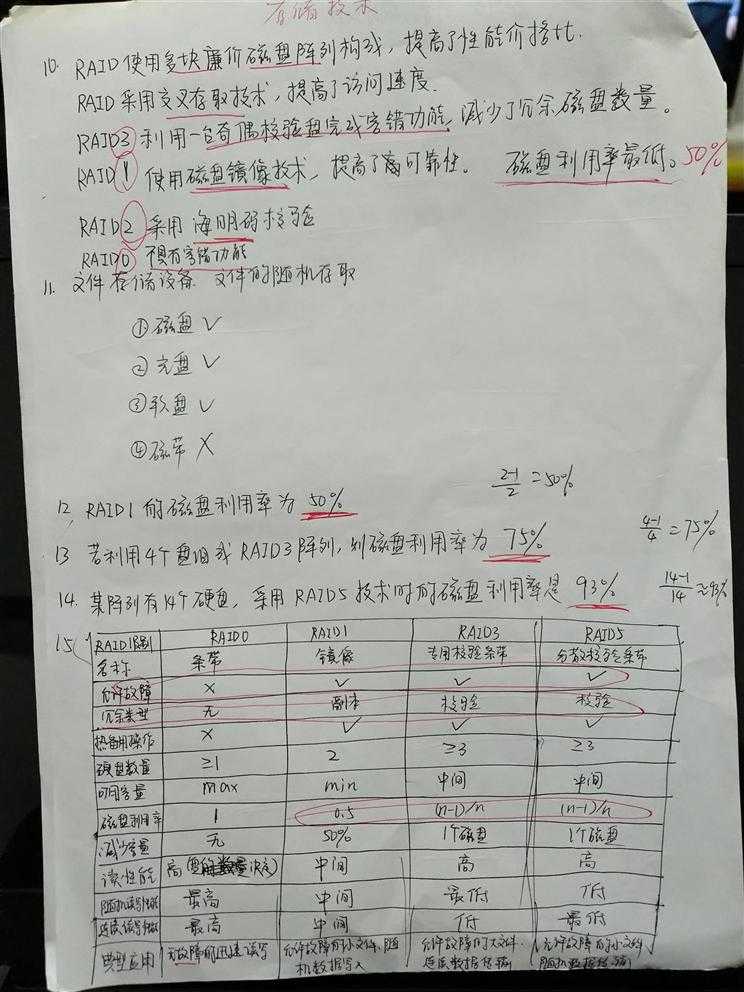 存储技术
10. RAID使用多块廉价磁盘阵列构成，提高了性能价格比.
RAID采用交叉存取技术，提高了访问速度.
RAID3利用一台奇偶校验盘完成容错功能，减少了冗余磁盘数量。
RAID1 使用磁盘镜像技术，提高了可靠性。 磁盘利用率最低。50%
RAID2 采用海明码校验
RAID0 不具有容错功能
11. 文件存储设备 文件的随机存取
①磁盘 √
②光盘 √
③软盘 √
④磁带 X
2-1/2 = 50%
12 RAID1的磁盘利用率为 50%
4-1/4 = 75%
13 若利用4个盘组成RAID3阵列，则磁盘利用率为 75%
14. 某阵列有14个硬盘，采用RAID5技术时的磁盘利用率是 93% 14-1/14 ≈93%
15 RAID级别 RAID0 RAID1 RAID3 RAID5
名称 条带 镜像 专用校验条带 分散校验条带
允许故障 × √ √ √
冗余类型 无 副本 校验 校验
热备用操作 × √ √ √
硬盘数量 ≥1 2 ≥3 ≥3
可用容量 max min 中间 中间
磁盘利用率 1 0.5 (n-1)/n (n-1)/n
减少容量 无 50% 1个磁盘 1个磁盘
读性能 高(盘的数量决定) 中间 高 高
随机读写性能 最高 中间 最低 低
连续读写性能 最高 中间 低 最低
典型应用 无故障的迅速读写 允许故障的小文件、随机数据写入 允许故障的大文件、连续数据传输 允许故障的小文件、随机数据传输